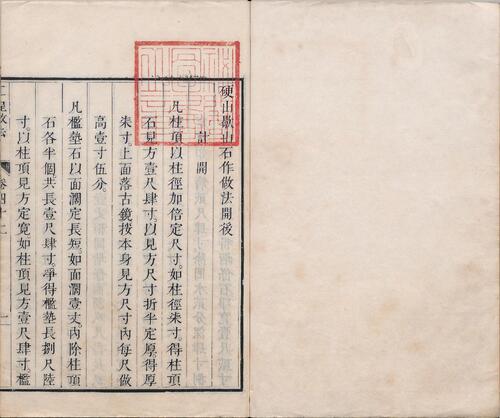 硬山歇山石作做法開後
計開
凡柱頂以柱徑加倍定尺寸。如柱徑柒寸。得柱頂
石見方壹尺肆寸。以見方尺寸折半定厚。得厚
柒寸。上面落古鏡。按本身見方尺寸內每尺做
高壹寸伍分。
凡檻墊石以面濶定長短。如面濶壹丈。內除柱頂
石各半個共長壹尺肆寸。爭得檻墊長捌尺陸
寸。以柱頂見方定寬。如柱頂見方壹尺肆寸。檻
工程做法 卷四十二 一